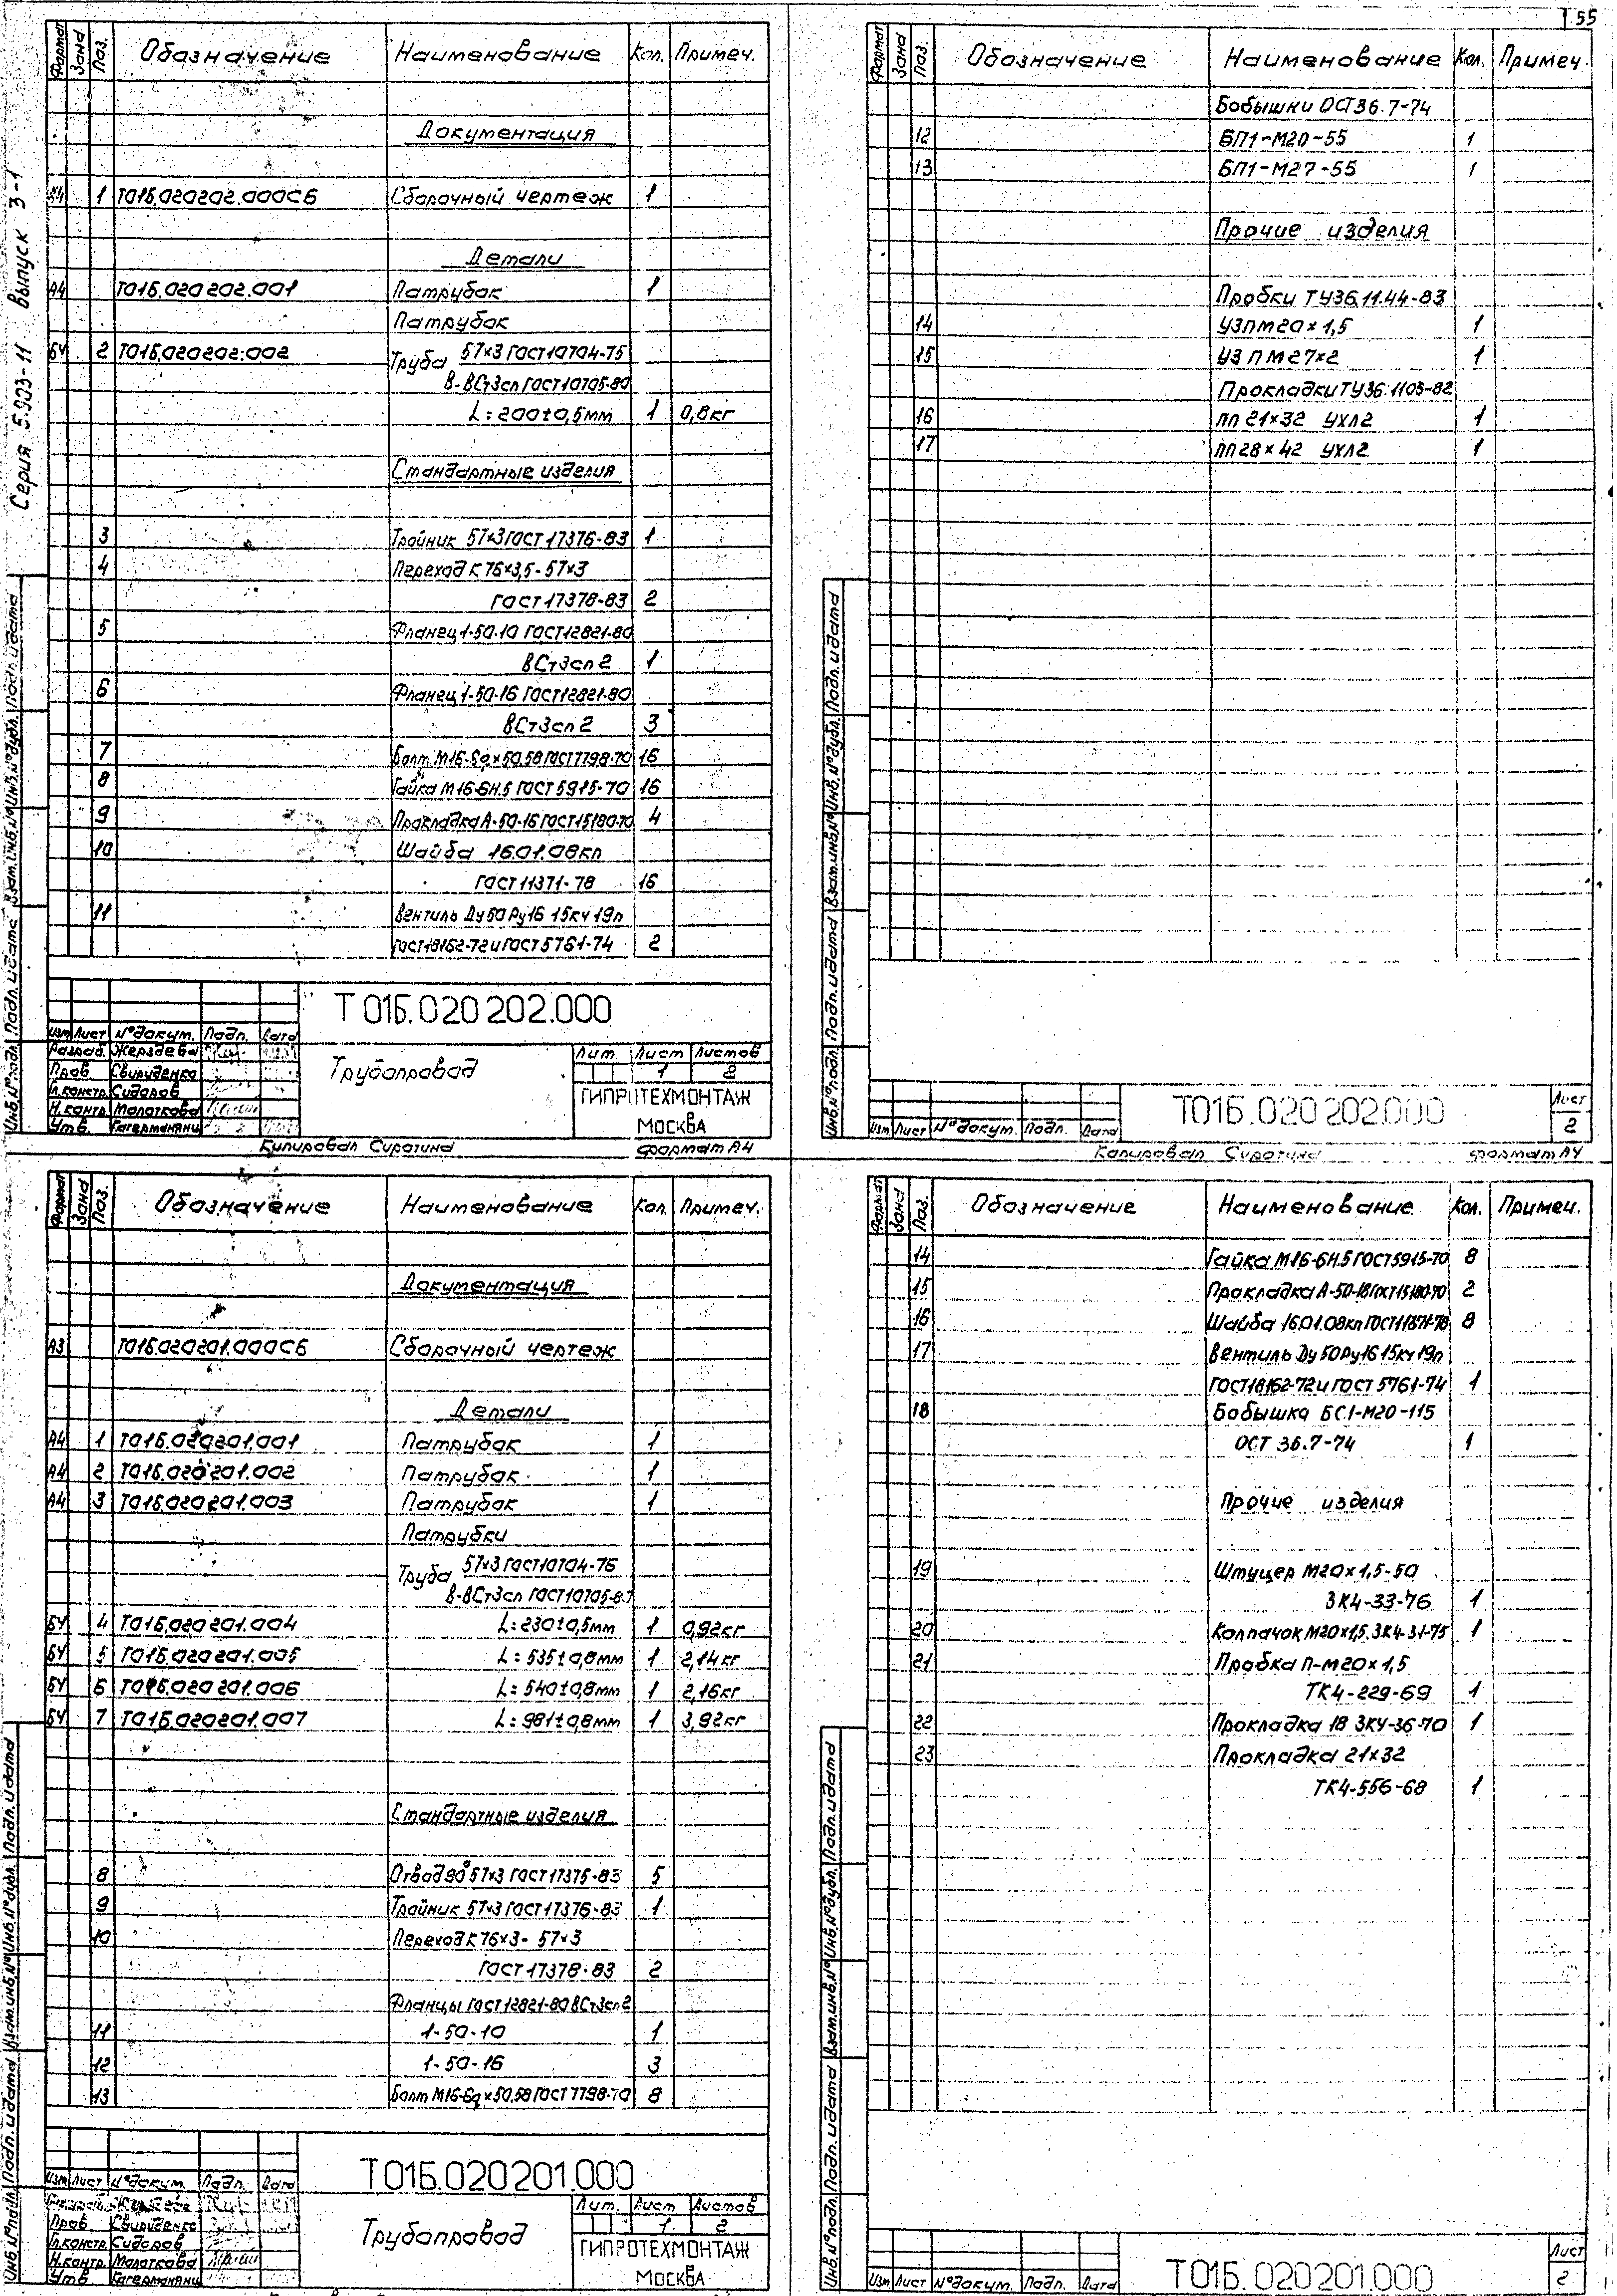 55
Серия 5.903-11 выпуск 3-1
Формат Зона Поз. Обозначение Наименование Кол. Примеч.
Документация
1 Т01Б.020202.000СБ Сборочный чертеж 1
Детали
А4 Т01Б.020202.001 Патрубок 1
Патрубок
БЧ 2 Т01Б.020202.002 Труба 57×3 ГОСТ 10704-76
В-ВСт3сп ГОСТ 10705-80
L=200±0,5мм 1 0,8кг
Стандартные изделия
3 Тройник 57×3 ГОСТ 17376-83 1
4 Переход К 76×3,5-57×3
ГОСТ 17378-83 2
5 Фланец 1-50-10 ГОСТ 12821-80
ВСт3сп2 1
6 Фланец 1-50-16 ГОСТ 12821-80
ВСт3сп2 3
7 Болт М16-6g×50.58 ГОСТ 7798-70 16
8 Гайка М16-6Н.5 ГОСТ 5915-70 16
9 Прокладка А-50-16 ГОСТ 15180-70 4
10 Шайба 16.01.08кп
ГОСТ 11371-78 16
11 Вентиль Ду50 Ру16 15кч19п
ГОСТ 18162-72 и ГОСТ 5761-74 2
Инв.№подл. Подп. и дата Взам.инв.№ Инв.№дубл. Подп. и дата
Т 01Б.020 202.000
Изм Лист №докум. Подп. Дата
Разраб. Жерздева
Пров. Свириденко
Гл.констр. Сидоров
Н.контр. Молоткова
Утв. Гагерманянц
Трубопровод
Лит. Лист Листов
1 2
ГИПРОТЕХМОНТАЖ
МОСКВА
Копировал Сиротина формат А4
Формат Зона Поз. Обозначение Наименование Кол. Примеч.
Бобышки ОСТ 36.7-74
12 БП1-М20-55 1
13 БП1-М27-55 1
Прочие изделия
Пробки ТУ36.11.44-83
14 УЗПМ20×1,5 1
15 УЗ П М27×2 1
Прокладки ТУ36.1103-82
16 ПП 21×32 УХЛ2 1
17 ПП 28×42 УХЛ2 1
Инв.№подл. Подп. и дата Взам.инв.№ Инв.№дубл. Подп. и дата
Изм Лист №докум. Подп. Дата
Т01Б.020 202.000
Лист
2
Копировал Сиротина формат А4
Формат Зона Поз. Обозначение Наименование Кол. Примеч.
Документация
А3 Т01Б.020201.000СБ Сборочный чертеж
Детали
А4 1 Т01Б.020201.001 Патрубок 1
А4 2 Т01Б.020201.002 Патрубок 1
А4 3 Т01Б.020201.003 Патрубок 1
Патрубки
Труба 57×3 ГОСТ 10704-76
В-ВСт3сп ГОСТ 10705-80
БЧ 4 Т01Б.020201.004 L=230±0,5мм 1 0,92кг
БЧ 5 Т01Б.020201.005 L=535±0,8мм 1 2,14кг
БЧ 6 Т01Б.020201.006 L=540±0,8мм 1 2,16кг
БЧ 7 Т01Б.020201.007 L=981±0,8мм 1 3,92кг
Стандартные изделия
8 Отвод 90° 57×3 ГОСТ 17375-83 5
9 Тройник 57×3 ГОСТ 17376-83 1
10 Переход К 76×3-57×3
ГОСТ 17378-83 2
Фланцы ГОСТ 12821-80 ВСт3сп2
11 1-50-10 1
12 1-50-16 3
13 Болт М16-6g×50.58 ГОСТ 7798-70 8
Инв.№подл. Подп. и дата Взам.инв.№ Инв.№дубл. Подп. и дата
Т01Б.020201.000
Изм Лист №докум. Подп. Дата
Пров. Свириденко
Гл.констр. Сидоров
Н.контр. Молоткова
Утв. Гагерманянц
Трубопровод
Лит. Лист Листов
1 2
ГИПРОТЕХМОНТАЖ
МОСКВА
Формат Зона Поз. Обозначение Наименование Кол. Примеч.
14 Гайка М16-6Н.5 ГОСТ 5915-70 8
15 Прокладка А-50-16 ГОСТ 15180-70 2
16 Шайба 16.01.08кп ГОСТ 11371-78 8
17 Вентиль Ду50 Ру16 15кч19п
ГОСТ 18162-72 и ГОСТ 5761-74 1
18 Бобышка БС1-М20-115
ОСТ 36.7-74 1
Прочие изделия
19 Штуцер М20×1,5-50
ЗК4-33-76 1
20 Колпачок М20×1,5 ЗК4-31-75 1
21 Пробка П-М20×1,5
ТК4-229-69 1
22 Прокладка 18 ЗК4-36-70 1
23 Прокладка 21×32
ТК4-556-68 1
Инв.№подл. Подп. и дата Взам.инв.№ Инв.№дубл. Подп. и дата
Изм Лист №докум. Подп. Дата
Т01Б.020201.000
Лист
2